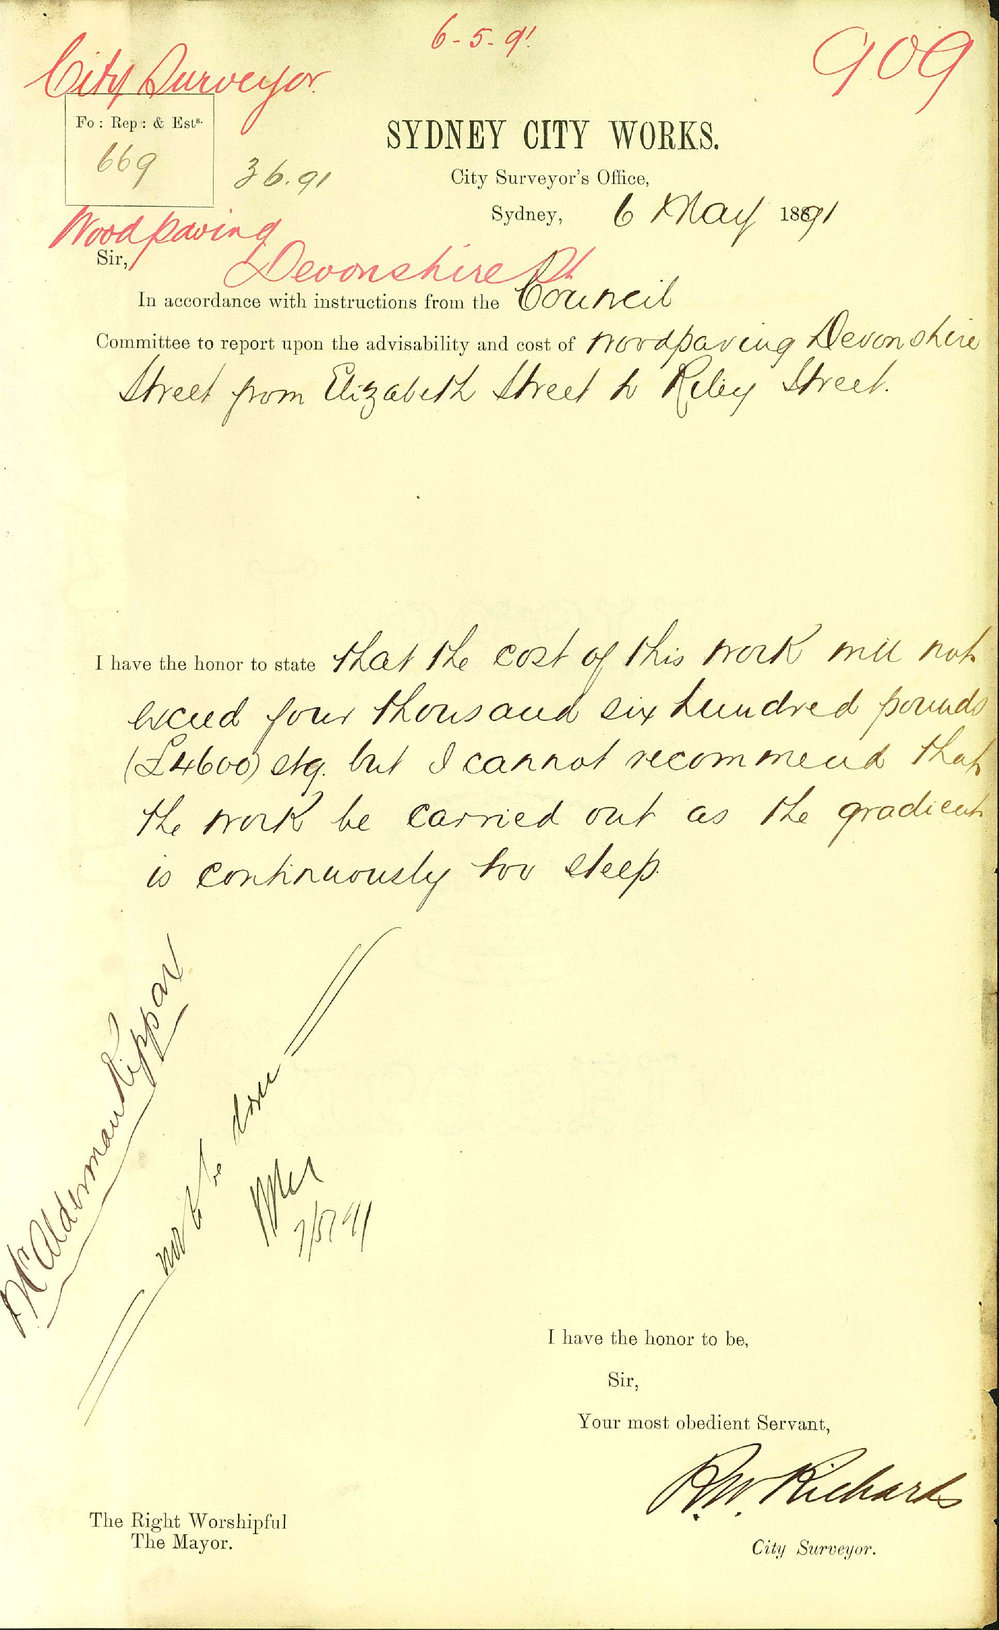 6-5-91.
909
City Surveyor.
Fo: Rep: & Ests.
669
36.91
SYDNEY CITY WORKS.
City Surveyor's Office,
Sydney, 6 May 1891
Woodpaving
Devonshire St
Sir,
In accordance with instructions from the Council
Committee to report upon the advisability and cost of woodpaving Devonshire
Street from Elizabeth Street to Riley Street.
I have the honor to state that the cost of this work will not
exceed four thousand six hundred pounds
(£4600) stg. but I cannot recommend that
the work be carried out as the gradient
is continuously too steep.
Alderman Kippax
not to be done
7/5/91
I have the honor to be,
Sir,
Your most obedient Servant,
R.W. Richards
City Surveyor.
The Right Worshipful
The Mayor.